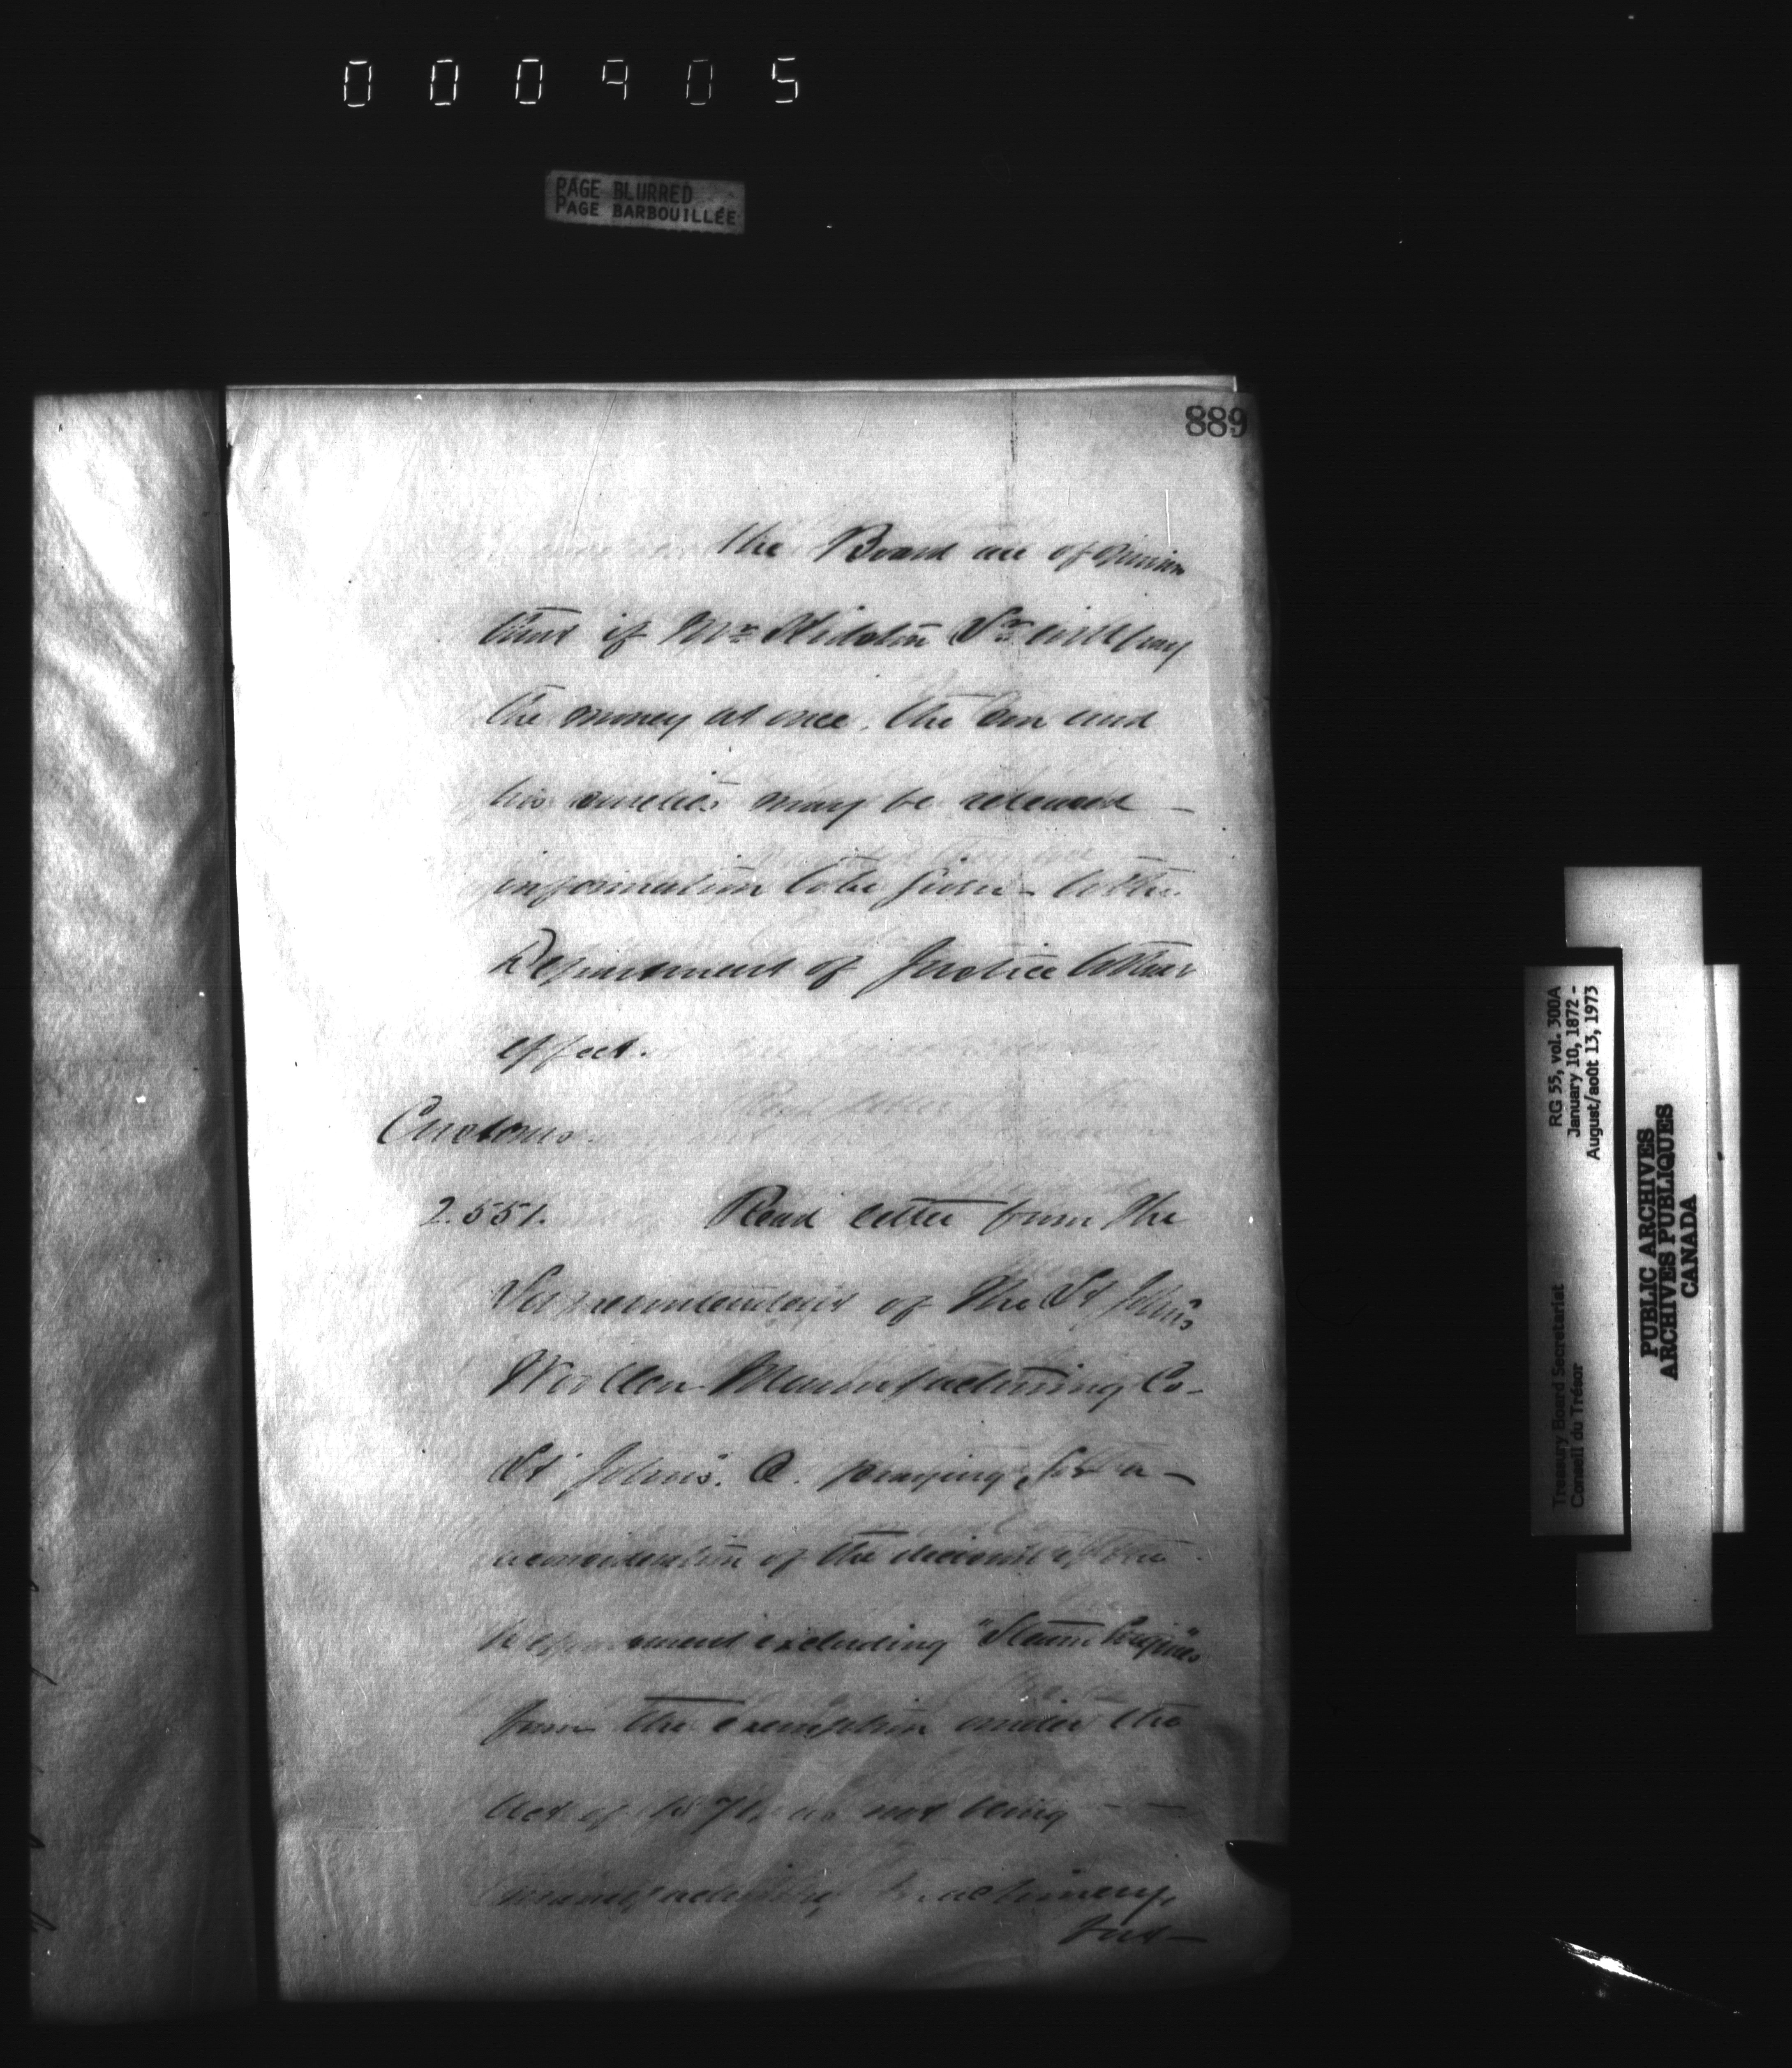 000905
PAGE BLURRED
PAGE BARBOUILLÉE
889
the Board are of opinion
that if Mr Sr will pay
the money at once, the Son and
his sureties may be released —
information to be given — to the
Department of Justice to that
effect.
Customs.
2.551. Read letter from the
of the St John's
Woollen Manufacturing Co-
St John's. Q. praying for a —
reconsideration of the decision of the
Department excluding "Steam Engines"
from the exemption under the
Act of 1871, as not being — —
manufacturing machinery,
RG 55, vol. 300A
January 10, 1872 -
August/août 13, 1973
Treasury Board Secretariat
Conseil du Trésor
PUBLIC ARCHIVES
ARCHIVES PUBLIQUES
CANADA